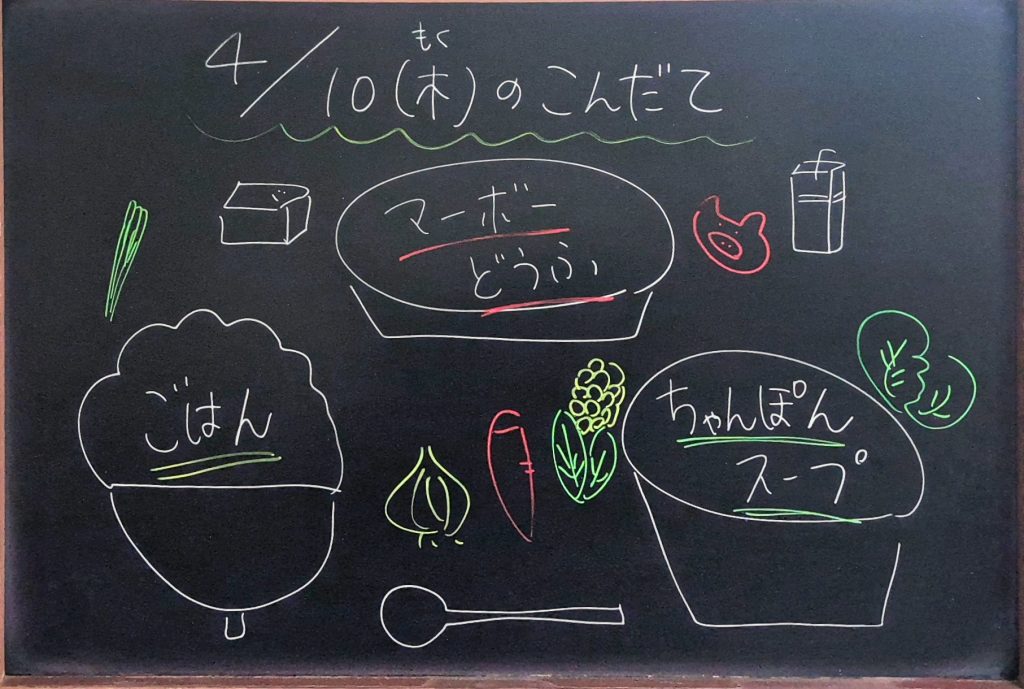 もく
4/10(木)のこんだて
マーボー
どうふ
ごはん
ちゃんぽん
スープ